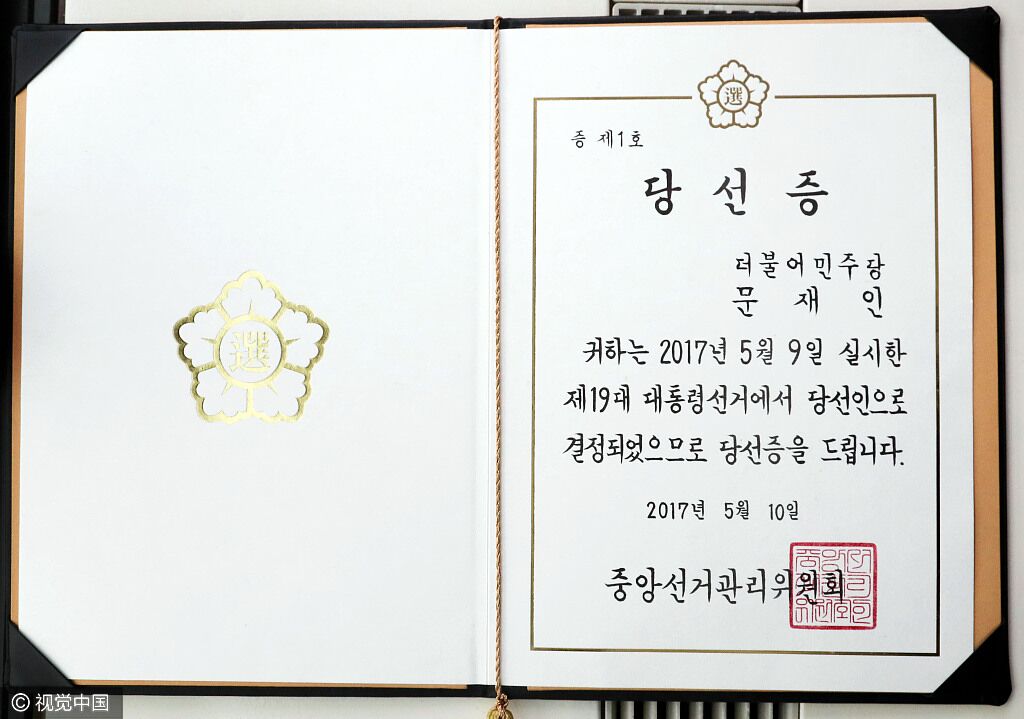 選
選
증 제1호
당 선 증
더불어민주당
문 재 인
귀하는 2017년 5월 9일 실시한
제19대 대통령선거에서 당선인으로
결정되었으므로 당선증을 드립니다.
2017년 5월 10일
중앙선거관리위원회
© 视觉中国